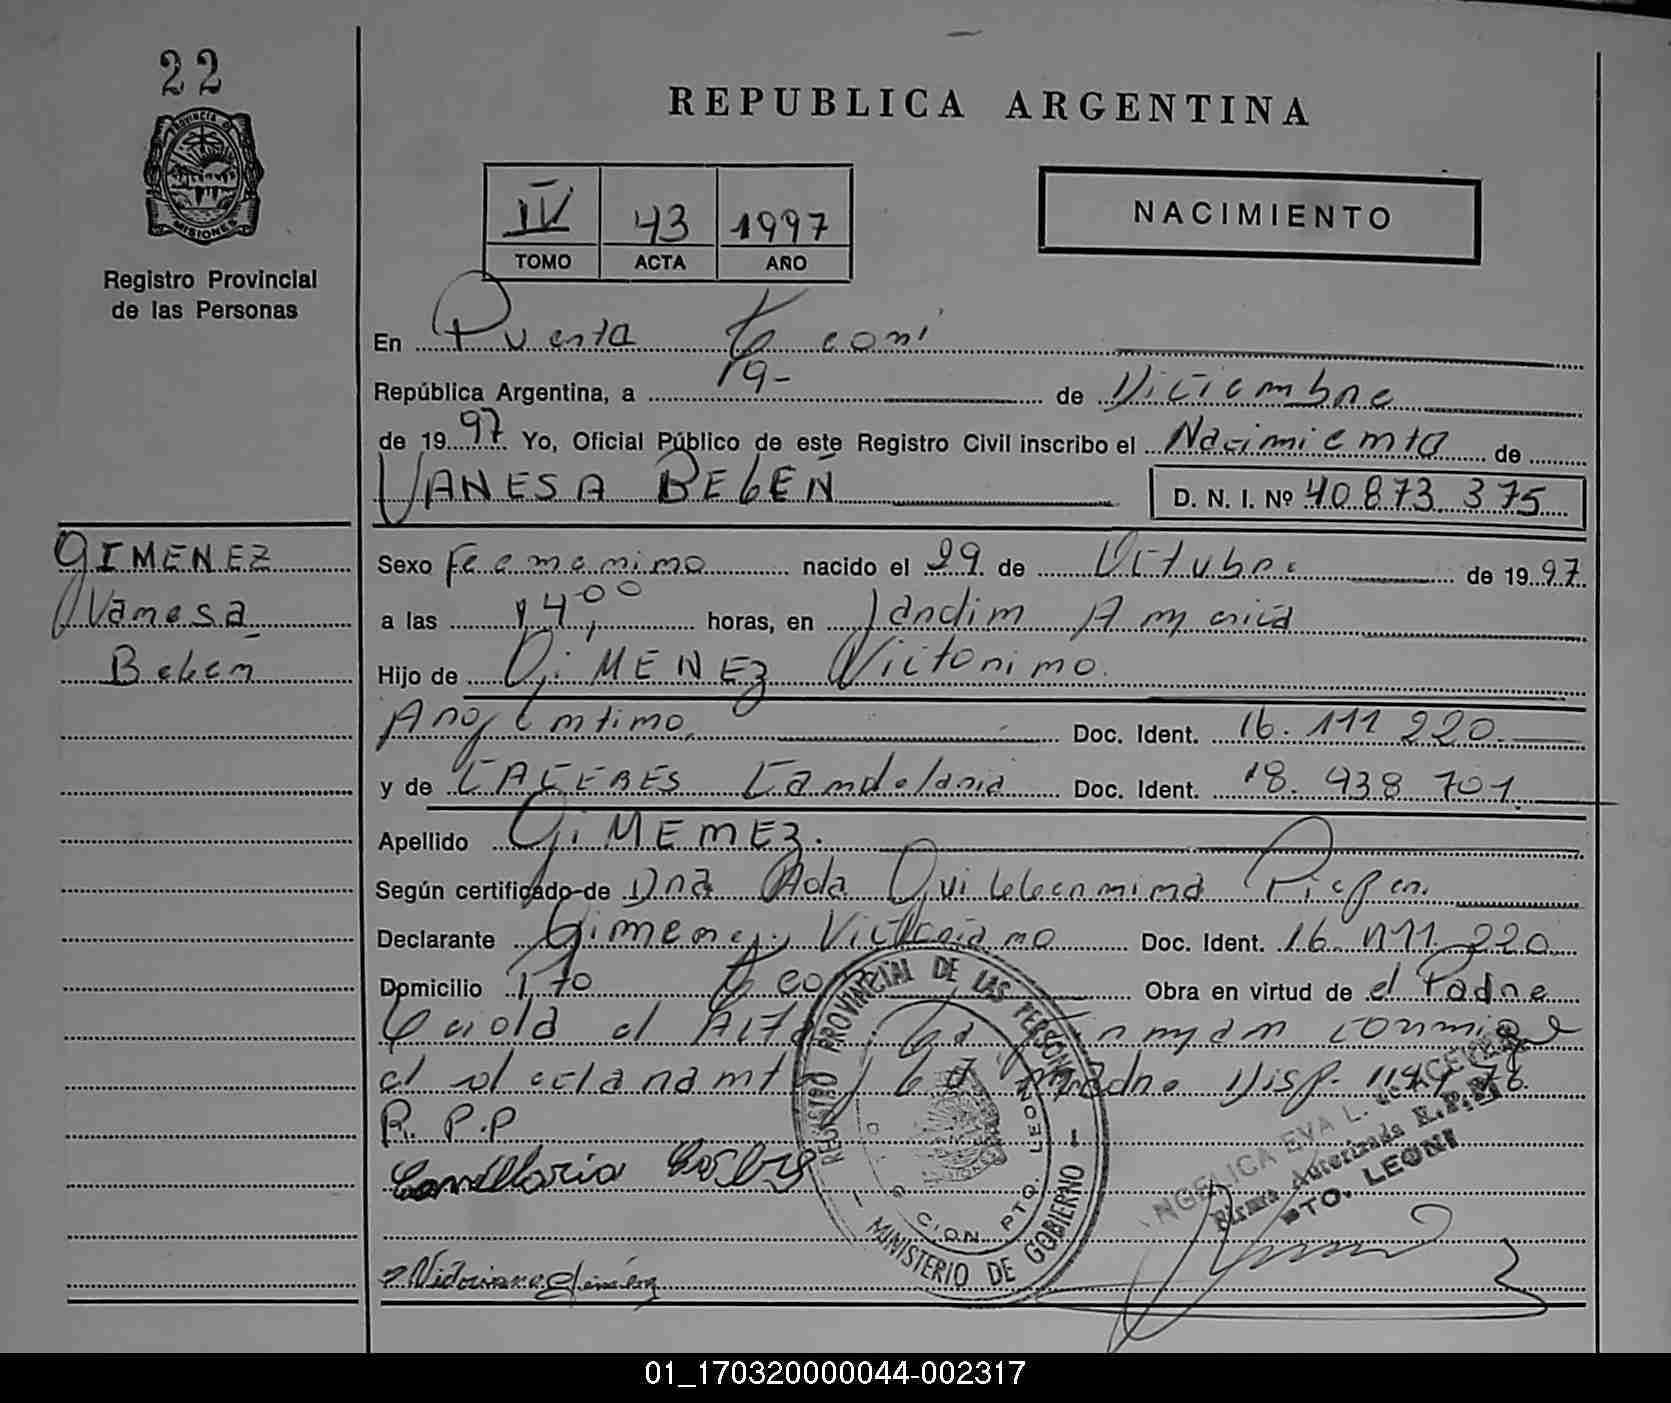 22
REPUBLICA ARGENTINA
PROVINCIA DE
MISIONES
Registro Provincial
de las Personas
IV 43 1997
TOMO ACTA AÑO
NACIMIENTO
En Puerto Leoni
República Argentina, a 19- de Diciembre
de 1997 Yo, Oficial Público de este Registro Civil inscribo el Nacimiento de
VANESA BELEN D. N. I. Nº 40.873 375
GIMENEZ
Vanesa
Belen
Sexo Femenino nacido el 29 de Octubre de 1997
a las 14,00 horas, en Jardim America
Hijo de GIMENEZ Victorino
Argentino, Doc. Ident. 16.111 220
y de CACERES Candelaria Doc. Ident. 18. 938 701
Apellido GIMENEZ.
Según certificado de Dra Ada Guillermina
Declarante Gimenez, Victoriano Doc. Ident. 16.111.220
Domicilio Leo Obra en virtud de el Padre
el Acta, la Firman conmigo
el declarante y la Madre Disp. 78.
R. P. P
Candelaria
Victoriano Giménez
REGISTRO PROVINCIAL DE LAS PERSONAS
MINISTERIO DE GOBIERNO
PTO LEONI
ANGELICA EVA L. de
Firma Autorizada R.P.P.
PTO. LEONI
01_170320000044-002317